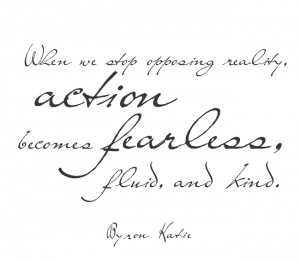 When we stop opposing reality,
action
becomes fearless,
fluid, and kind.
Byron Katie